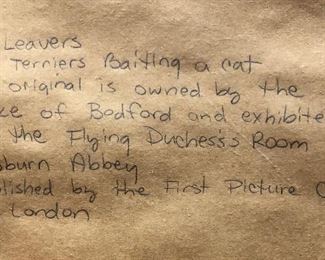 Leavers
Terriers Baiting a cat
original is owned by the
of Bedford and exhibite
the Flying Duchess's Room
sburn Abbey
lished by the First Picture
London